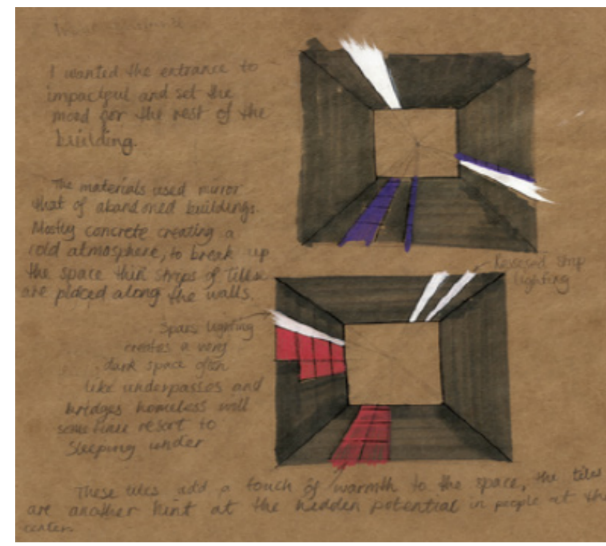 I wanted the entrance to
impactful and set the
mood for the rest of the
building.
The materials used mirror
that of abandoned buildings.
Mostly concrete creating a
cold atmosphere, to break up
the space thin strips of tiles
are placed along the walls.
Recessed strip
lighting
Sparse lighting
creates a very
dark space often
like underpasses and
bridges homeless will
sometimes resort to
sleeping under
These tiles add a touch of warmth to the space, the tiles
are another hint at the hidden potential in people at the
center.